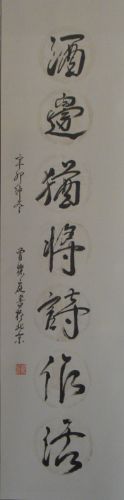 酒邊猶將詩作活
辛卯仲冬
曾
書於北京